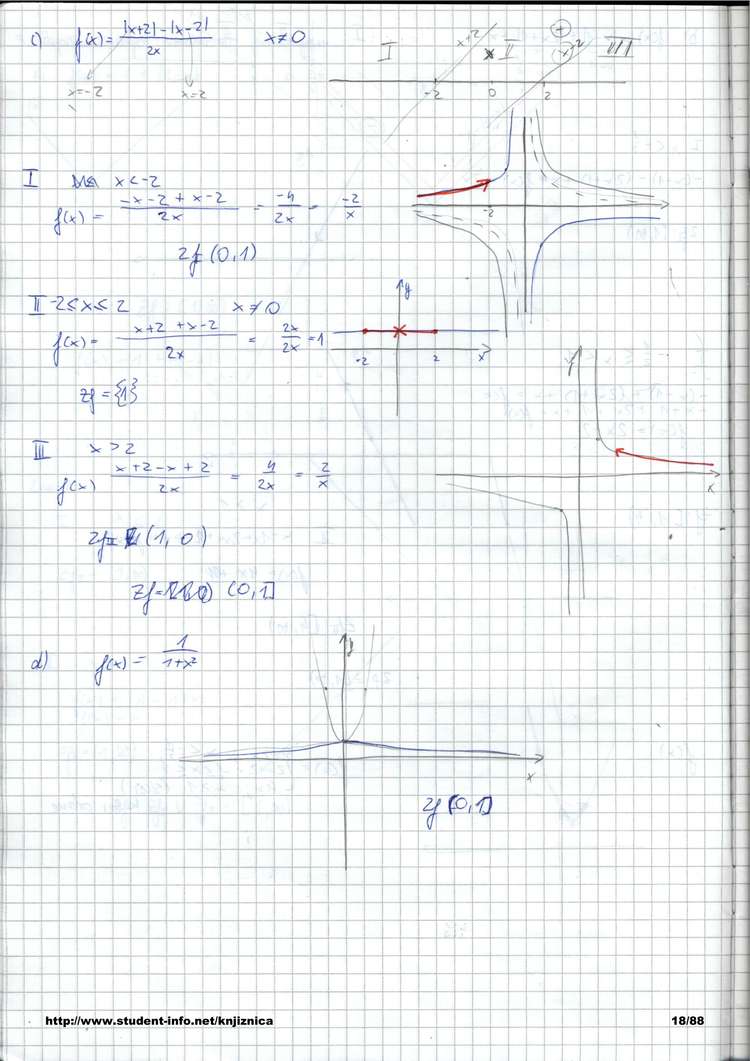 c) f(x) = |x+2| - |x-2| / 2x    x≠0
x=-2    x=2
I    x+2    II    + (x)-2    III
-2    0    2
I    x<-2
f(x) = -x-2+x-2 / 2x = -4/2x = -2/x
-2
Zf (0,1)
II -2≤x≤2    x≠0
f(x) = x+2+x-2 / 2x = 2x/2x = 1
y
-2    2    x
Zf = {1}
y
x
III    x>2
f(x) x+2-x+2 / 2x = 4/2x = 2/x
Zf = (1,0)
Zf = (0,1]
d) f(x) = 1 / 1+x²
y
x
Zf (0,1]
http://www.student-info.net/knjiznica    18/88